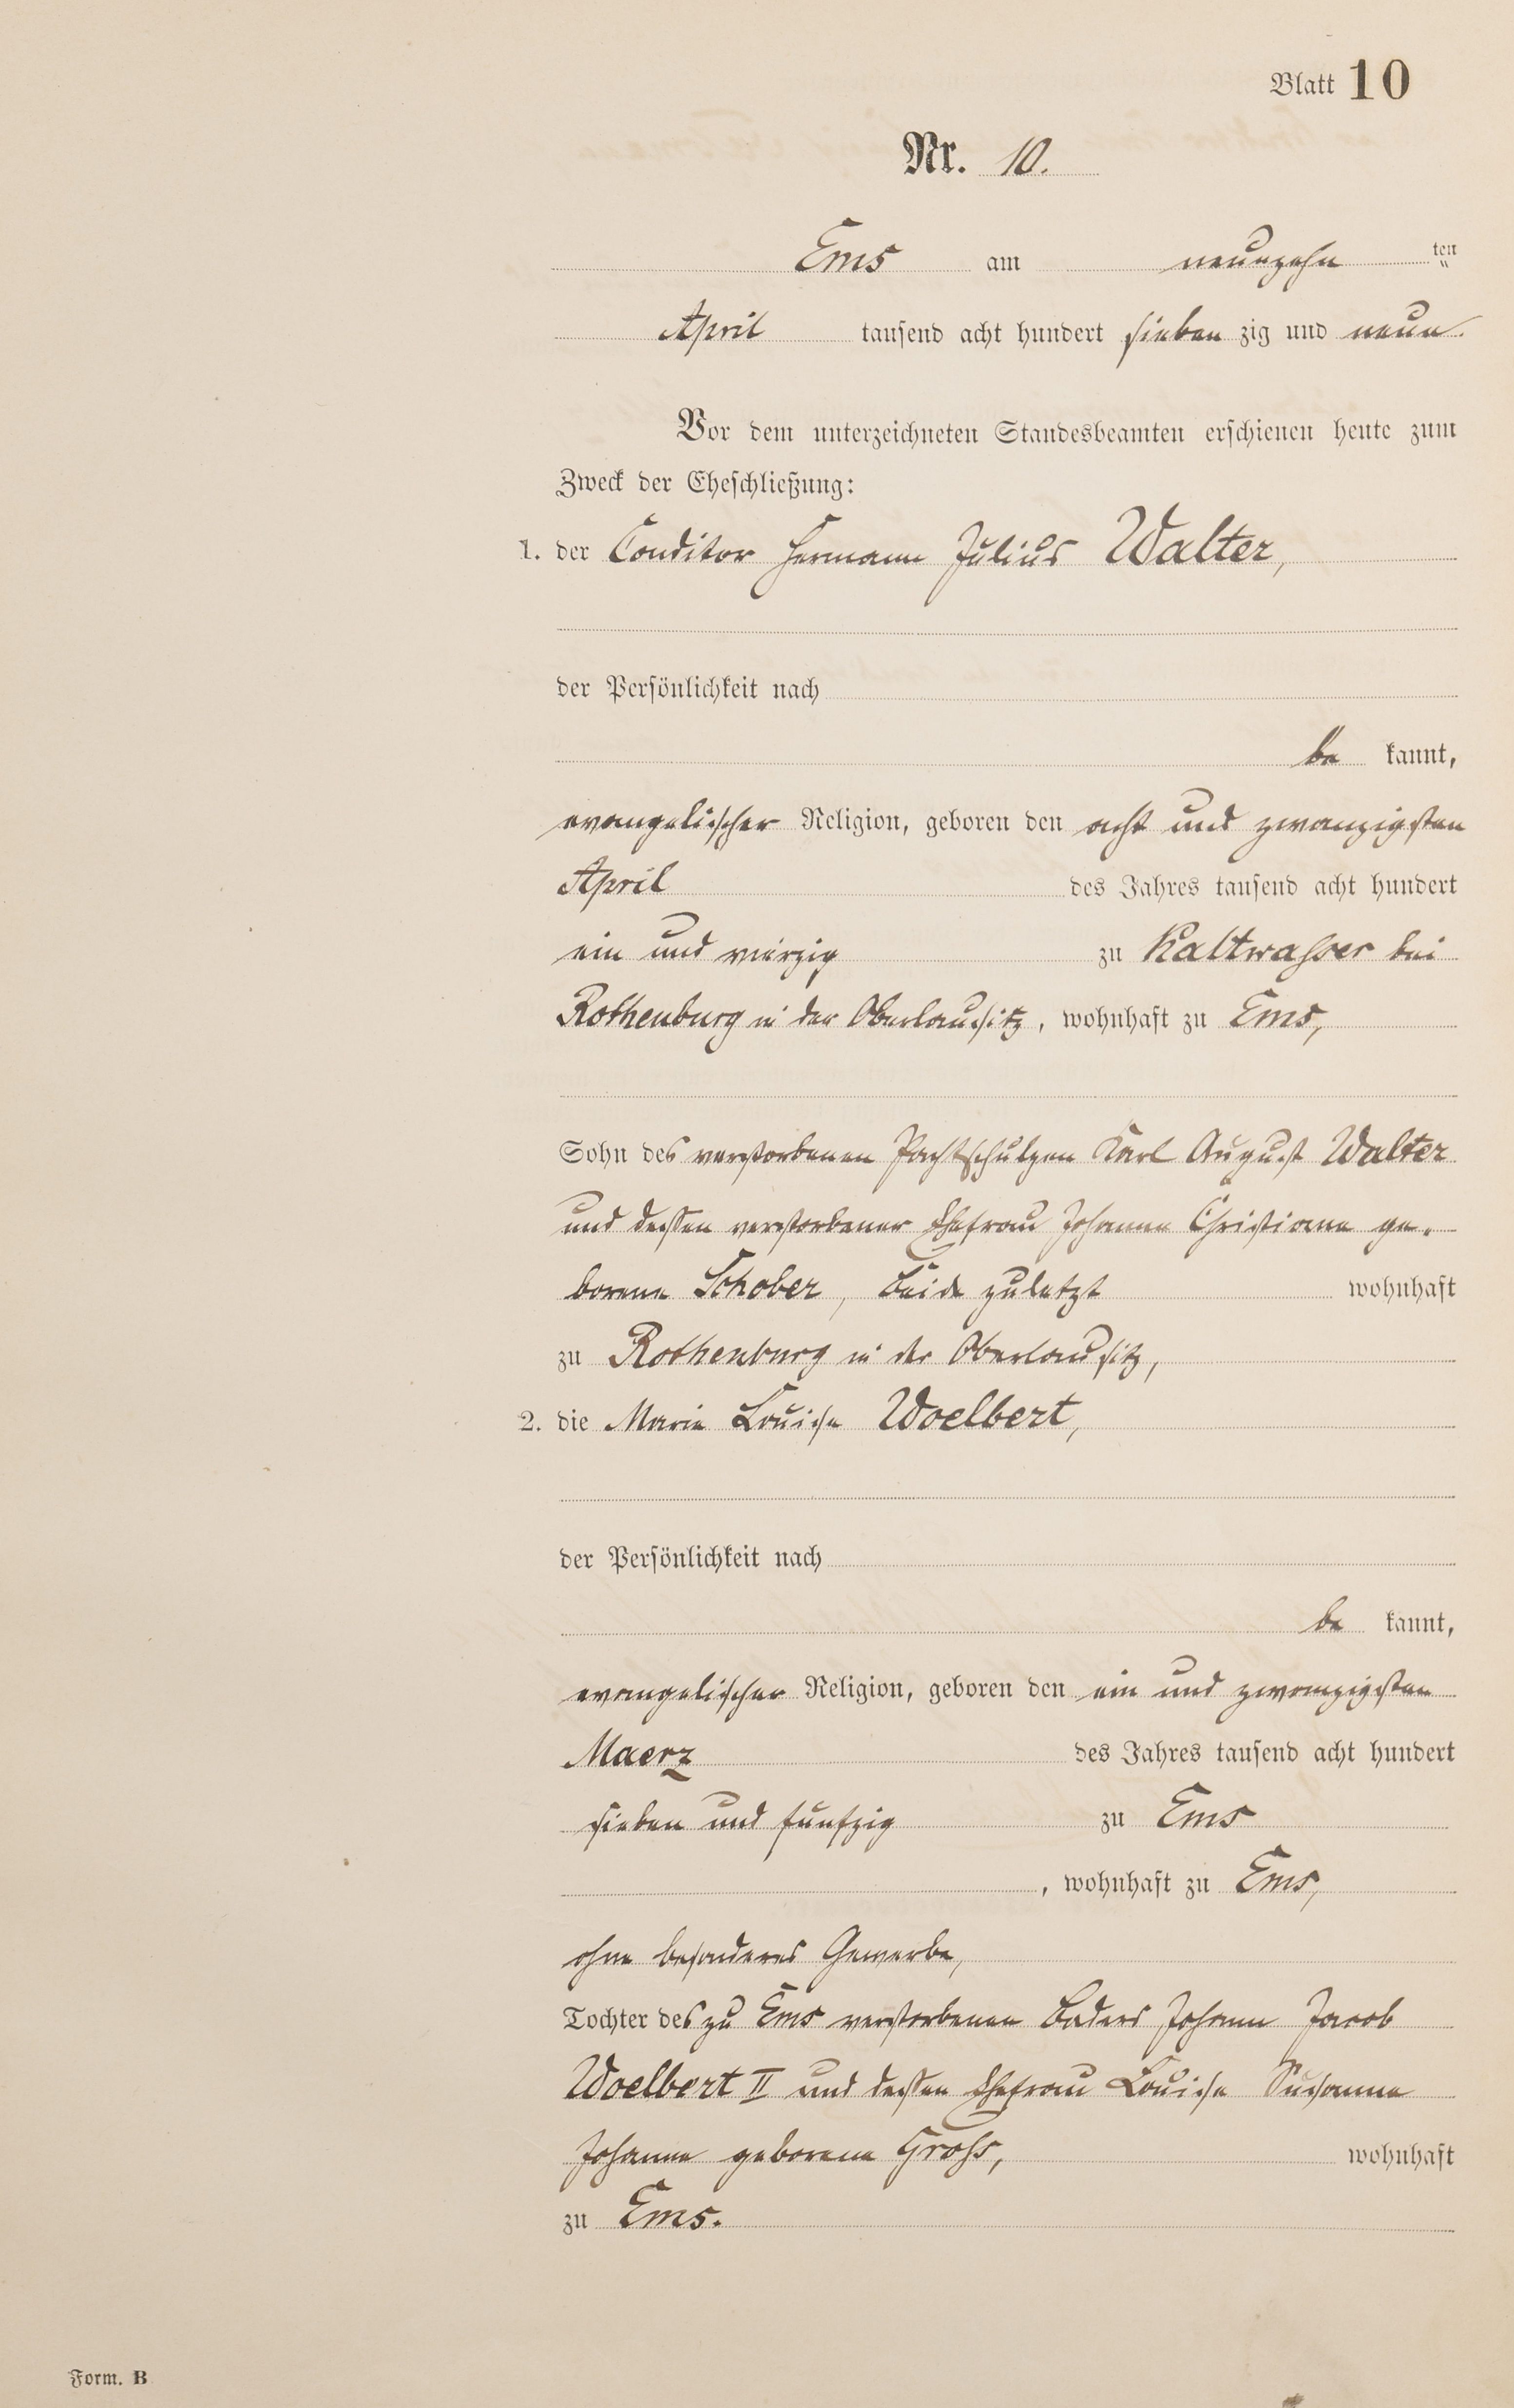 Blatt 10
Nr. 10.
Ems am neunzehn ten
April tausend acht hundert sieben zig und neun
Vor dem unterzeichneten Standesbeamten erschienen heute zum
Zweck der Eheschließung:
1. der Conditor Hermann Julius Walter,
der Persönlichkeit nach
be kannt,
evangelischer Religion, geboren den acht und zwanzigsten
April des Jahres tausend acht hundert
ein und vierzig zu Kaltwasser bei
Rothenburg in der Oberlausitz, wohnhaft zu Ems,
Sohn des verstorbenen Pachtschulzen Karl August Walter
und dessen verstorbener Ehefrau Johanne Christiane ge-
borene Schober, Beide zuletzt wohnhaft
zu Rothenburg in der Oberlausitz,
2. die Marie Louise Woelbert,
der Persönlichkeit nach
be kannt,
evangelischer Religion, geboren den ein und zwanzigsten
Maerz des Jahres tausend acht hundert
sieben und fünfzig zu Ems
, wohnhaft zu Ems,
ohne besonderes Gewerbe,
Tochter des zu Ems verstorbenen Baders Johann Jacob
Woelbert II und dessen Ehefrau Louise Susanne
Johanne geborene Groß, wohnhaft
zu Ems.
Form. B